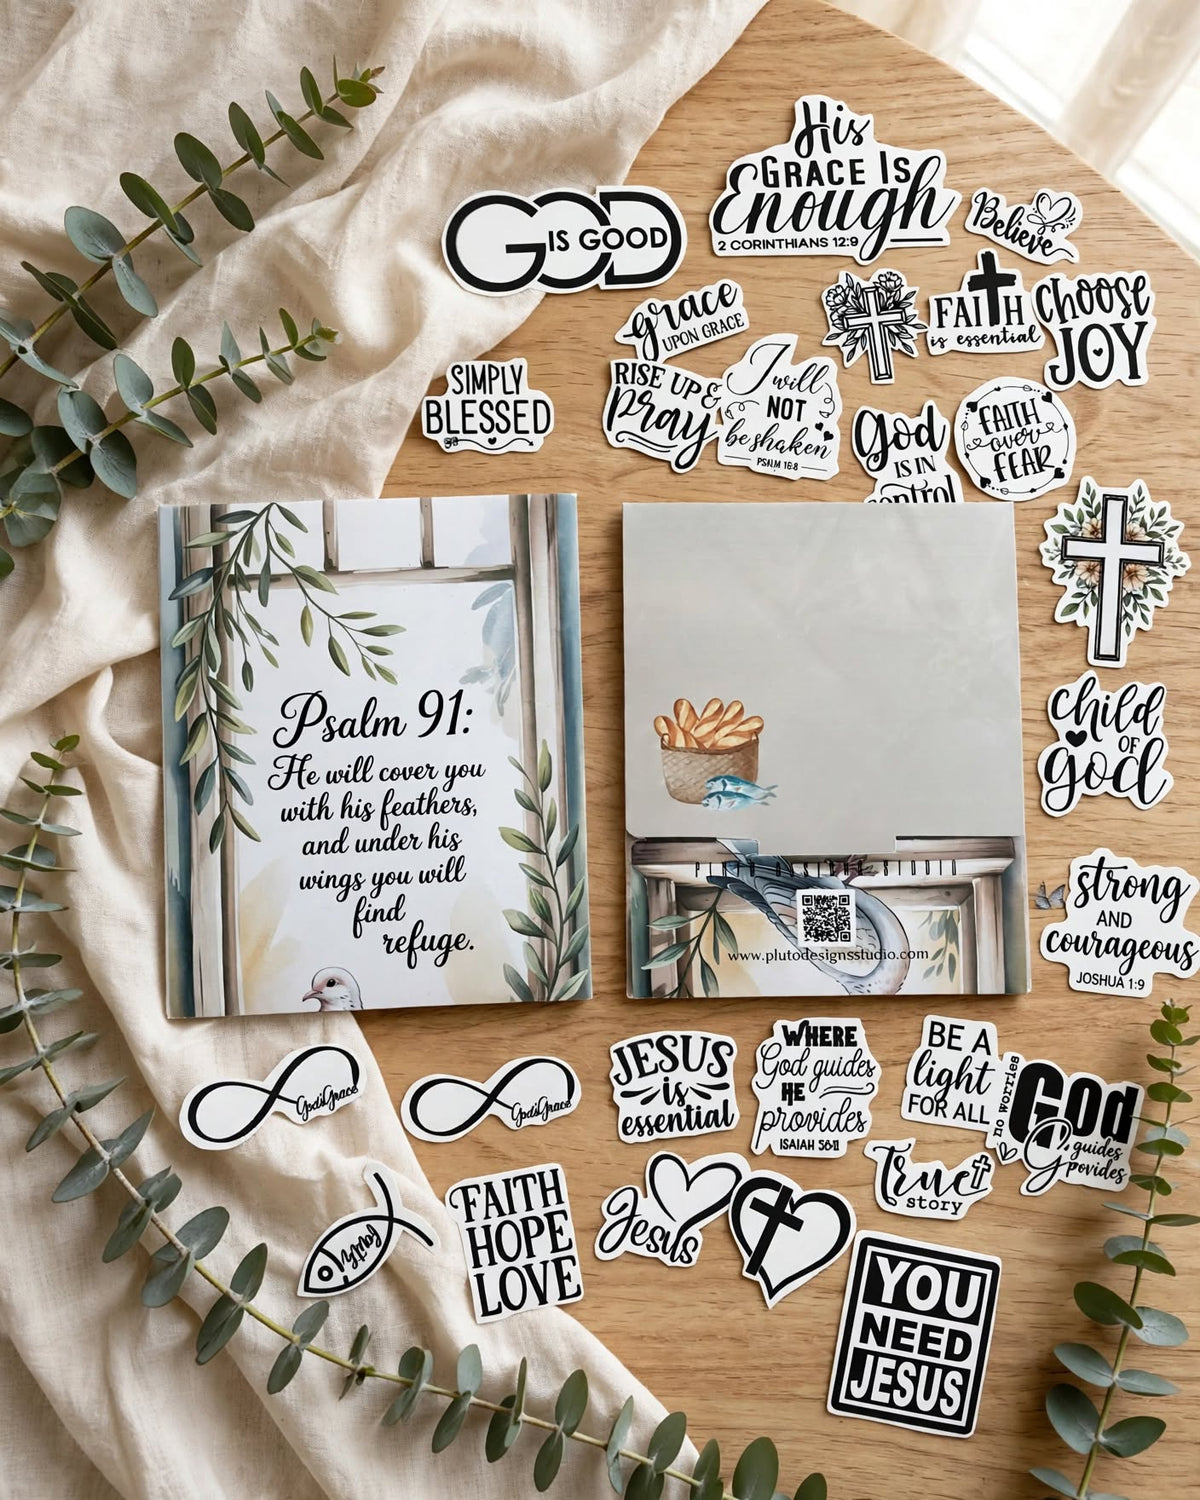 His
GRACE IS
Enough
2 CORINTHIANS 12:9
GOD
IS GOOD
Believe
grace
UPON GRACE
FAITH
is essential
CHOOSE
JOY
SIMPLY
BLESSED
RISE UP &
Pray
I will
NOT
be shaken
PSALM 16:8
God
IS IN
control
FAITH
over
FEAR
Psalm 91:
He will cover you
with his feathers,
and under his
wings you will
find
refuge.
PLUTO DESIGNS STUDIO
www.plutodesignsstudio.com
child
OF
god
strong
AND
courageous
JOSHUA 1:9
God's Grace
God's Grace
JESUS
is
essential
WHERE
God guides
HE
provides
ISAIAH 58:11
BE A
light
FOR ALL
no worries
GOd
guides
povides
faith
FAITH
HOPE
LOVE
Jesus
True
story
YOU
NEED
JESUS